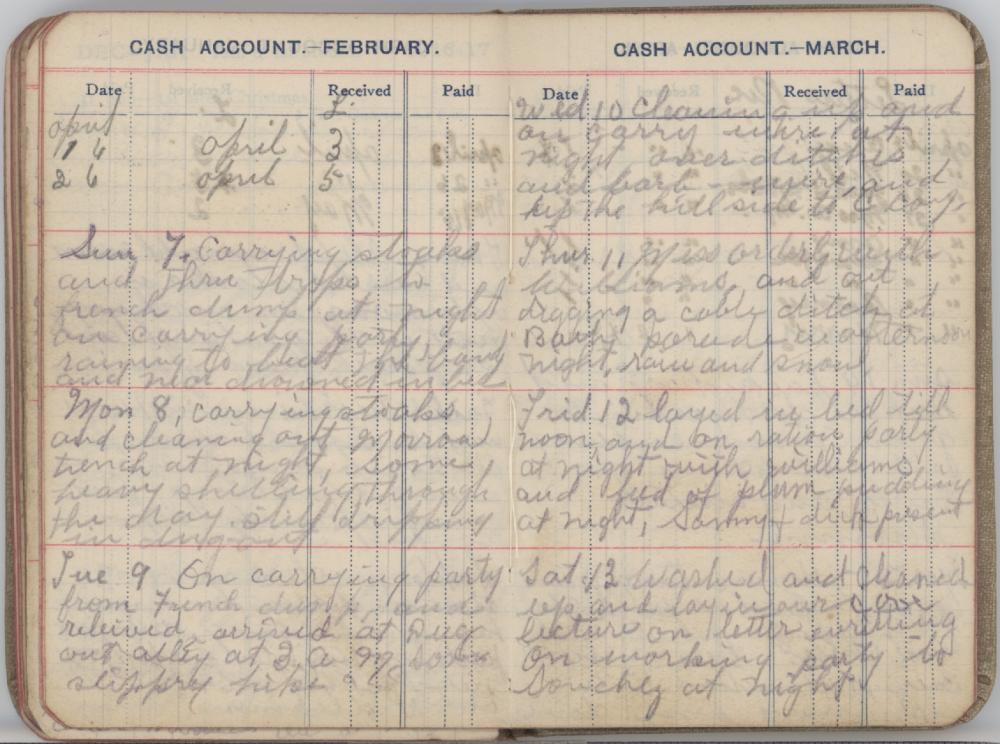 CASH ACCOUNT.—FEBRUARY.
Date Received Paid
£
april
16 april 3
26 april 5
Sun 7, Carrying stoaks
and three trips to
french dump at night
on carrying party,
raining to beat the band
and near drowned in bed
Mon 8, carrying stoaks
and cleaning out Morrow
trench at night, some
heavy shelling through
the day. still dripping
in dugout
Tue 9 On carrying party
from French dump, and
releived, arrived at Dug
out alley at 3, a m, some
slippry
CASH ACCOUNT.—MARCH.
Date Received Paid
Wed 10 Cleaning up and
on carry wire at
night over ditches
and barb-wire, and
up the hill side to C Coy.
Thur 11 Mess orderly with
Williams, and out
digging a cable ditch at
Bath parade in afternoon
night, rain and snow
Frid 12 layed in bed till
noon, and on ration party
at night with williams
and feed of plum pudding
at night, Sammy + dick present
Sat 13 Washed and cleaned
up, and lay in our
lecture on letter writting
On working party to
Souchez at night